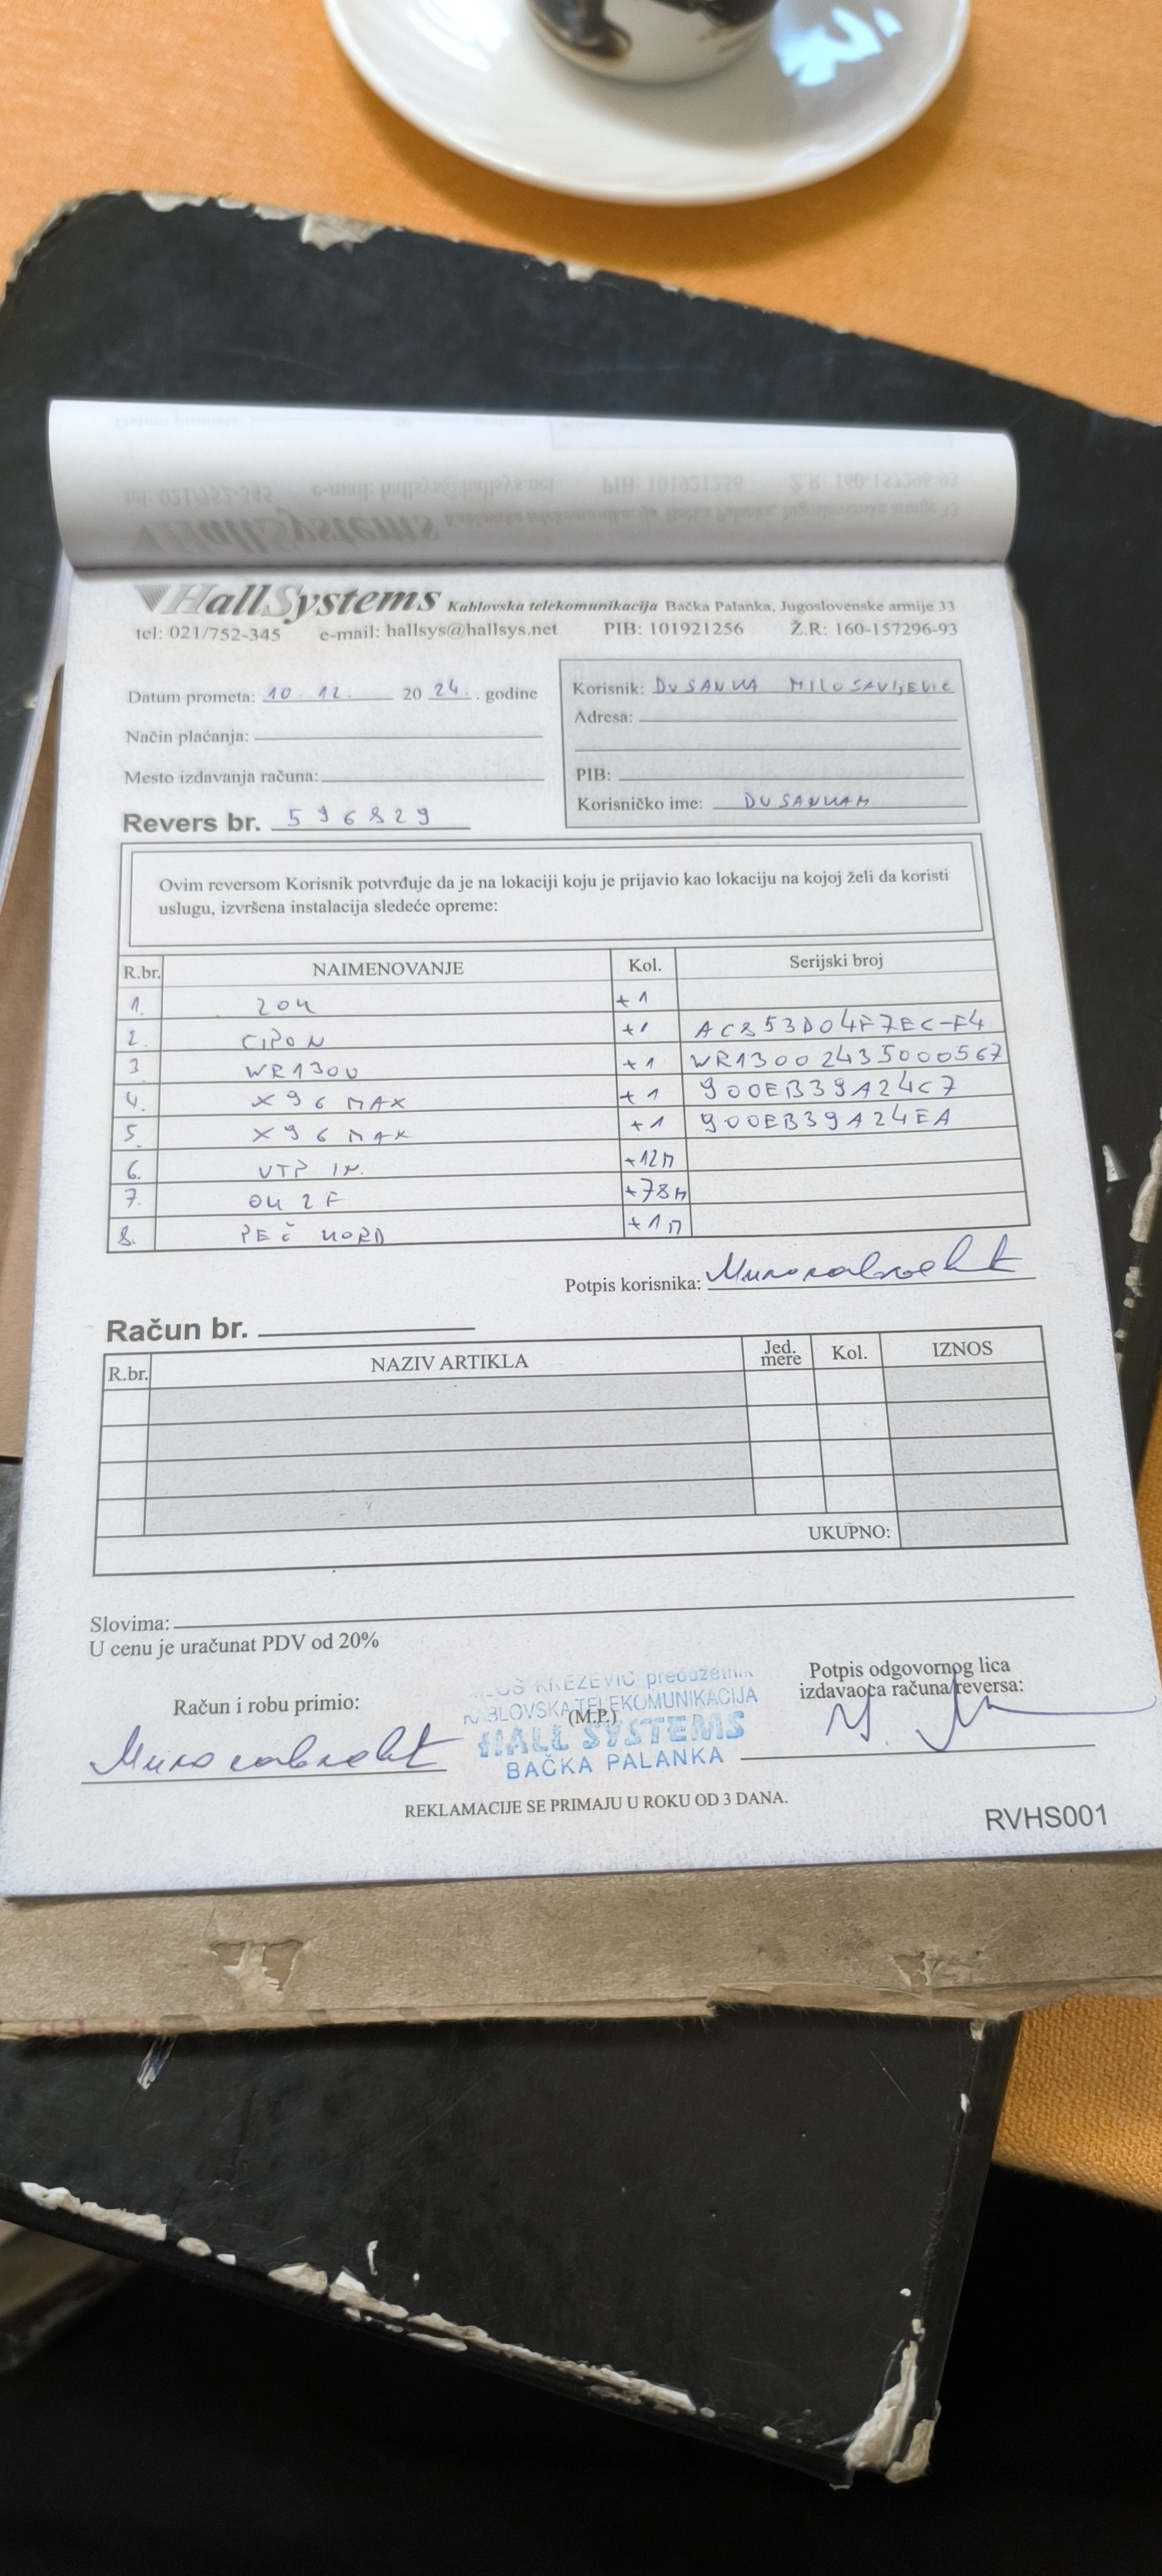 HallSystems Kablovska telekomunikacija Bačka Palanka, Jugoslovenske armije 33
tel: 021/752-345 e-mail: hallsys@hallsys.net PIB: 101921256 Ž.R: 160-157296-93
Datum prometa: 10.12. 20 24. godine
Način plaćanja:
Mesto izdavanja računa:
Revers br. 596829
Korisnik: DUSANKA MILOSAVLJEVIC
Adresa:
PIB:
Korisničko ime: DUSANKAM
Ovim reversom Korisnik potvrđuje da je na lokaciji koju je prijavio kao lokaciju na kojoj želi da koristi
uslugu, izvršena instalacija sledeće opreme:
R.br. NAIMENOVANJE Kol. Serijski broj
1. +1
2. CIPON +1 AC853D04F7EC-F4
3 WR1300 +1 WR13002435000567
4. X96 MAX +1 900EB39A24C7
5. X96 MAX +1 900EB39A24EA
6. UTP +12M
7. OK 2F +78M
8. PEČ KORD +1M
Potpis korisnika:
Račun br.
R.br. NAZIV ARTIKLA Jed. mere Kol. IZNOS
UKUPNO:
Slovima:
U cenu je uračunat PDV od 20%
Račun i robu primio:
KNEŽEVIĆ preduzetnik
KABLOVSKA TELEKOMUNIKACIJA
(M.P.)
HALL SYSTEMS
BAČKA PALANKA
Potpis odgovornog lica
izdavaoca računa/reversa:
REKLAMACIJE SE PRIMAJU U ROKU OD 3 DANA.
RVHS001